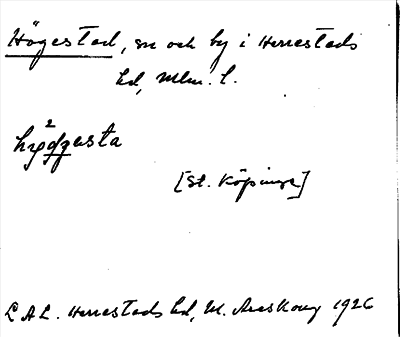 Högestad, sn och by i Herrestads
hd, Mlm. l.
[St. Köpinge]
L A L. Herrestads hd, M. Areskoug 1926